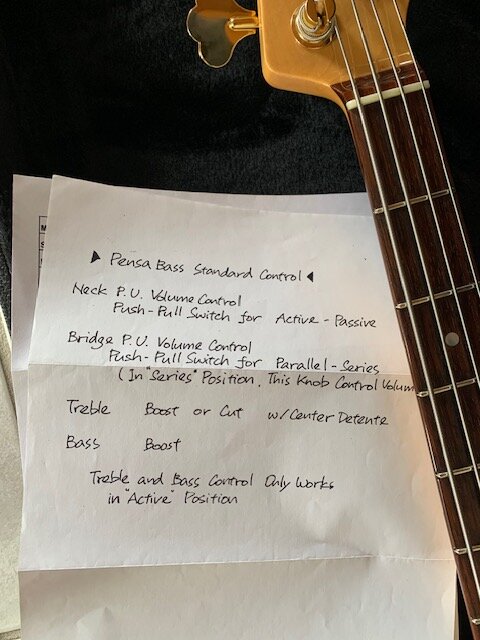 ▶ Pensa Bass Standard Control ◀
Neck P.U. Volume Control
Push-Pull Switch for Active-Passive
Bridge P.U. Volume Control
Push-Pull Switch for Parallel-Series
(In "Series" Position, This Knob Control Volum
Treble Boost or Cut w/Center Detente
Bass Boost
Treble and Bass Control Only Works
in "Active" Position